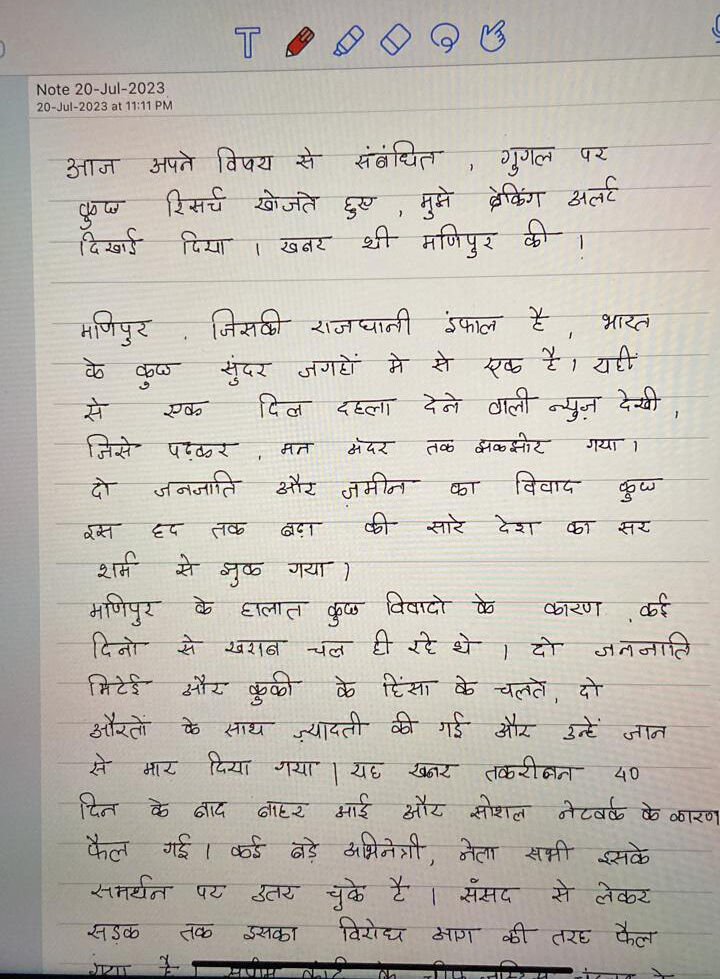 T
Note 20-Jul-2023
20-Jul-2023 at 11:11 PM
आज अपने विषय से संबंधित , गुगल पर
कुछ रिसर्च खोजते हुए , मुझे ब्रेकिंग अलर्ट
दिखाई दिया । खबर थी मणिपुर की ।
मणिपुर , जिसकी राजधानी इंफाल है , भारत
के कुछ सुंदर जगहों मे से एक है । यहीं
से एक दिल दहला देने वाली न्युज़ देखी ,
जिसे पढ़कर , मन अंदर तक झकझोर गया ।
दो जनजाति और ज़मीन का विवाद कुछ
इस हद तक बढ़ा की सारे देश का सर
शर्म से झुक गया ।
मणिपुर के हालात कुछ विवादो के कारण , कई
दिनो से खराब चल ही रहे थे । दो जनजाति
मिटेई और कुकी के हिंसा के चलते, दो
औरतों के साथ ज़्यादती की गई और उन्हें जान
से मार दिया गया । यह खबर तकरीबन 40
दिन के बाद बाहर आई और सोशल नेटवर्क के कारण
फैल गई । कई बड़े अभिनेत्री, नेता सभी इसके
समर्थन पर उतर चुके है । संसद से लेकर
सड़क तक इसका विरोध आग की तरह फैल
गया है । के